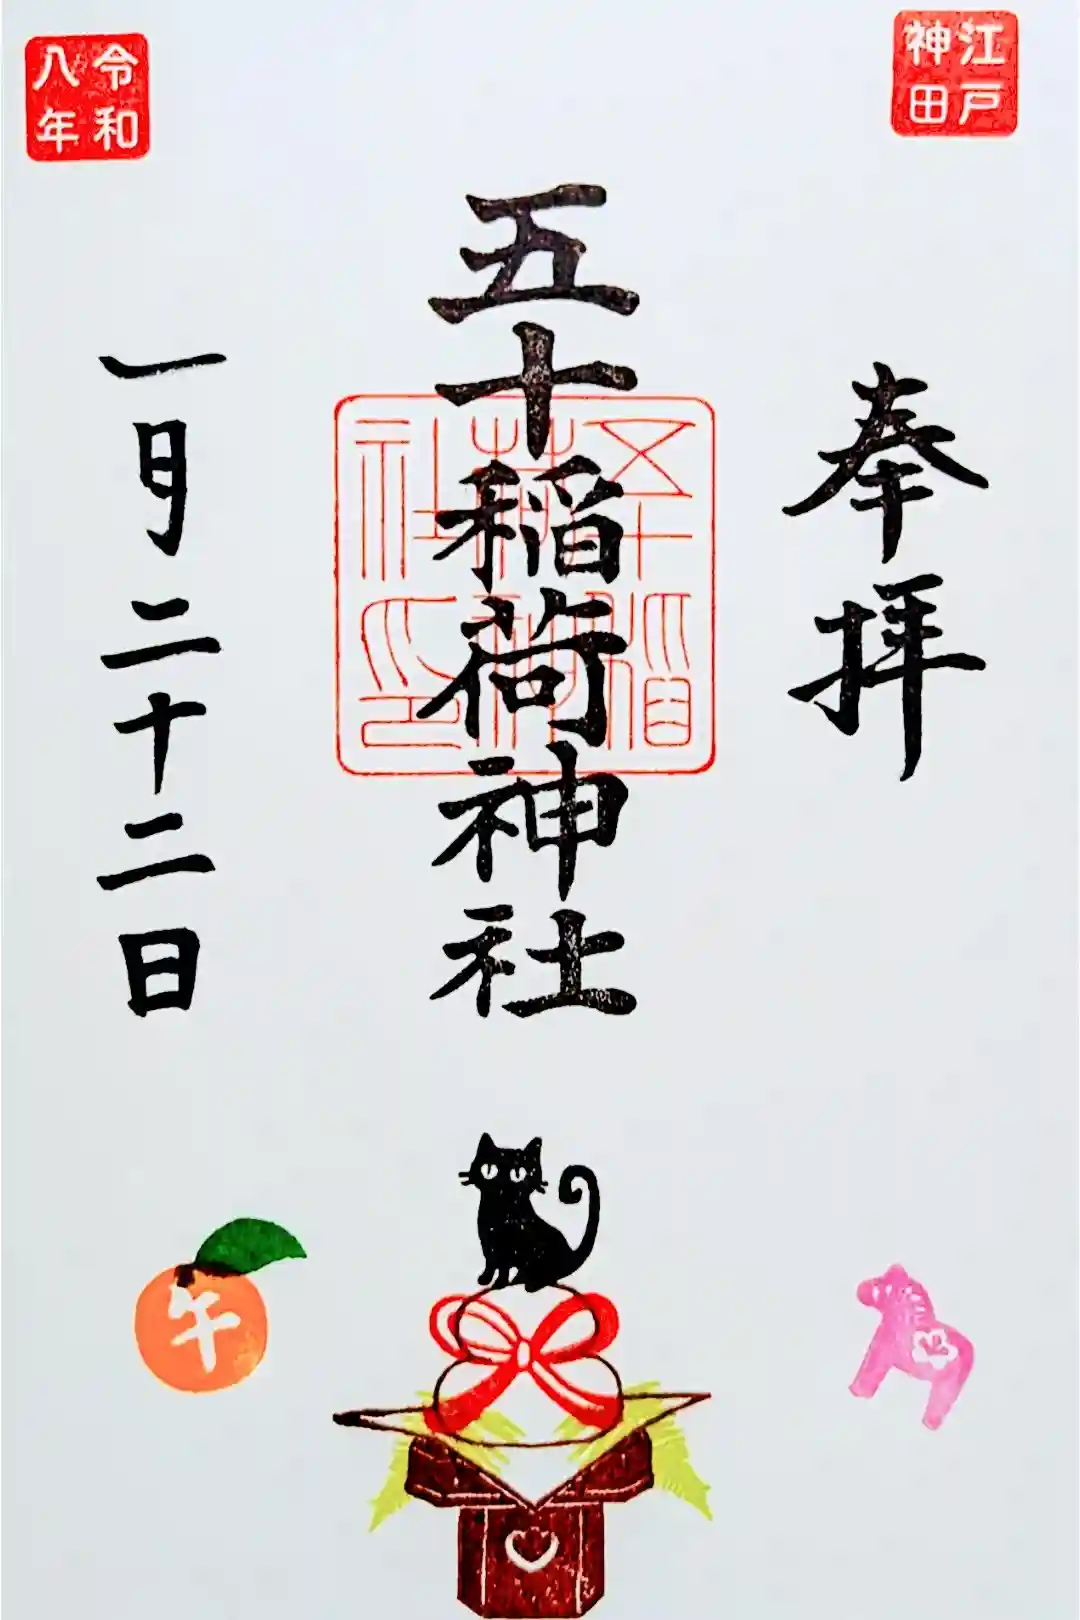 江戸
神田
奉拝
五十稲荷神社
五十稲
荷神
社印
令和
八年
一月二十二日
午